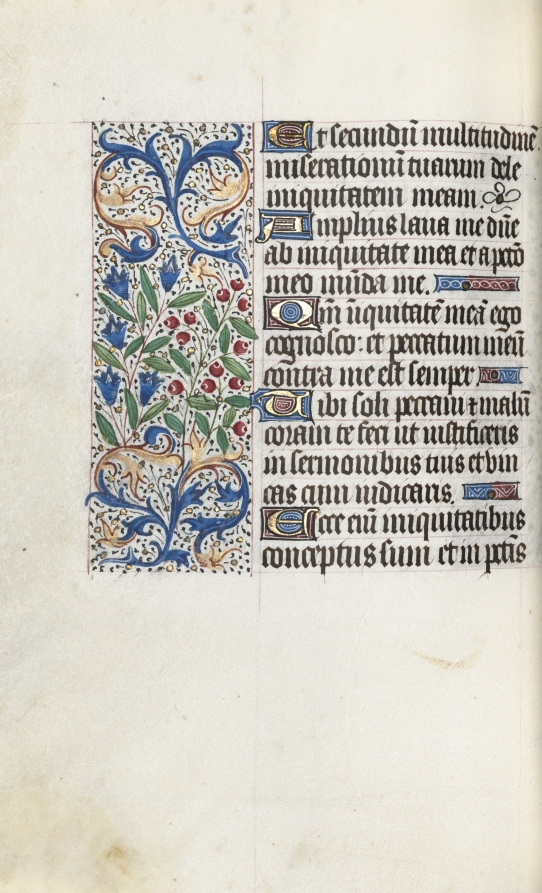 Et secundũ multitudinẽ
miserationũ tuarum dele
iniquitatem meam
Amplius laua me dñe
ab iniquitate mea et a pctõ
meo mũda me.
Qm̃ iniquitatẽ meã ego
cognosco: et peccatum meũ
contra me est semper
Tibi soli peccaui ⁊ malũ
coram te feci ut iustificeris
in sermonibus tuis et vin
cas cum iudicaris.
Ecce eñi iniquitatibus
conceptus sum et in pctĩs